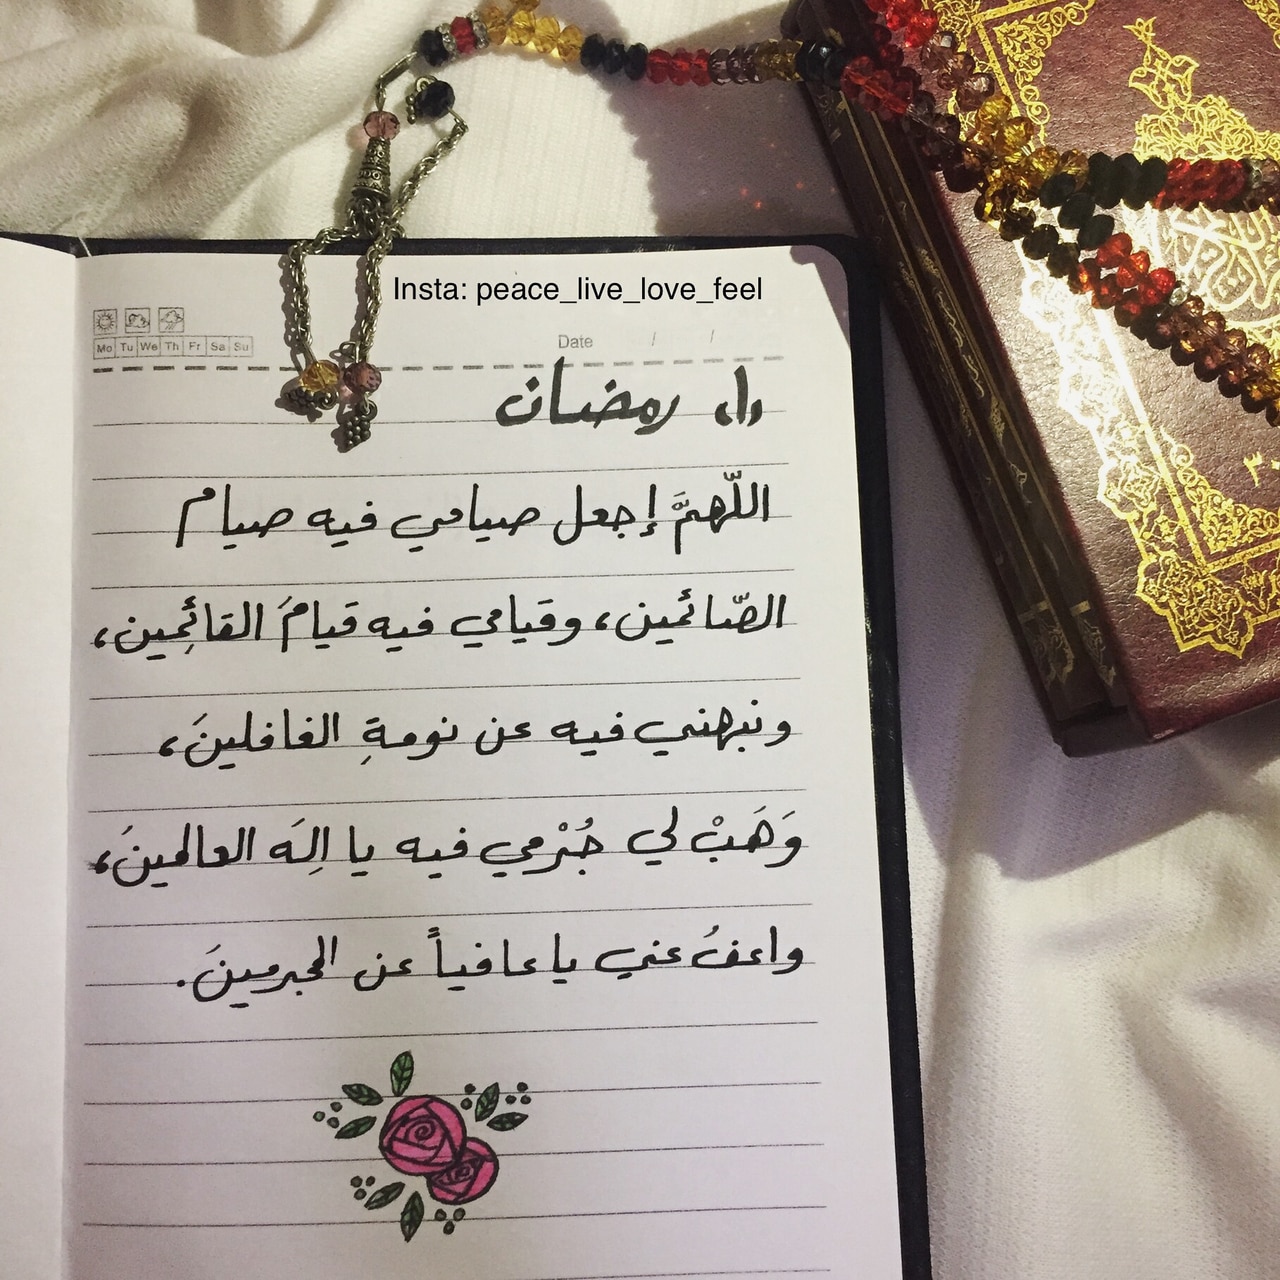 Insta: peace_live_love_feel
Mo Tu We Th Fr Sa Su
Date / /
(١) رمضان
اللّهمَّ إجعل صيامي فيه صيام
الصّائمين، وقيامي فيه قيامَ القائِمين،
ونبهني فيه عن نومةِ الغافلينَ،
وَهَبْ لي جُرْمي فيه يا اِلهَ العالمينَ،
واعفُ عني يا عافياً عن المجرمينَ.